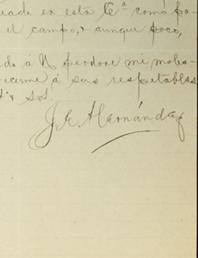 en esta Cª como
el campo, aunque poco,
á U perdone mi moles-
á sus respetables
J. E. Hernández